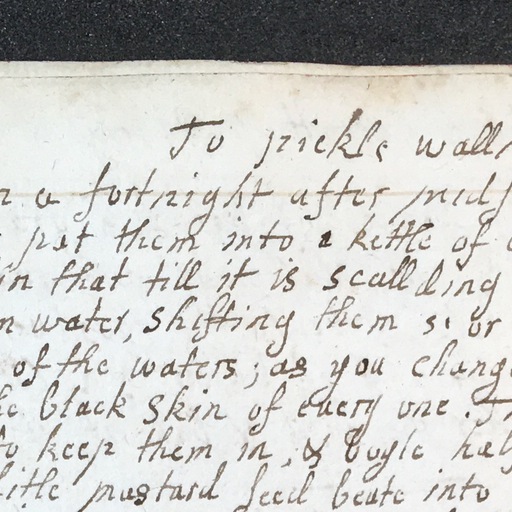 To pickle wall
a fortnight after mids
put them into a kettle of
in that till it is scallding
water, shifting them or
of the waters; as you change
black skin of every one.
to keep them in, & boyle half
little mustard seed beate into